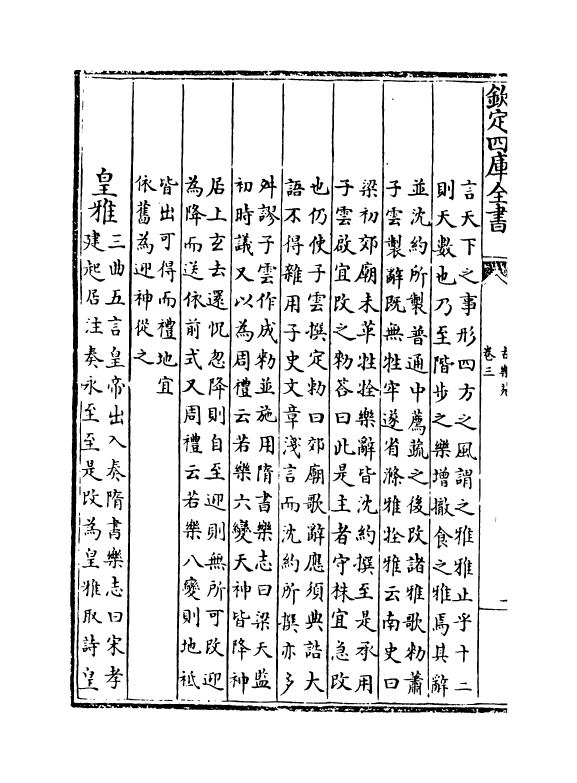 欽定四庫全書
古樂苑
卷三
一
言天下之事形四方之風謂之雅雅止乎十二
則天數也乃至階步之樂增撤食之雅焉其辭
並沈約所製普通中薦蔬之後改諸雅歌勑蕭
子雲製辭既無牲牢遂省滌雅牷雅云南史曰
梁初郊廟未革牲牷樂辭皆沈約撰至是承用
子雲啟宜改之勑答曰此是主者守株宜急改
也仍使子雲撰定勑曰郊廟歌辭應須典誥大
語不得雜用子史文章淺言而沈約所撰亦多
舛謬子雲作成勑並施用隋書樂志曰梁天監
初時議又以為周禮云若樂六變天神皆降神
居上玄去還怳忽降則自至迎則無所可改迎
為降而送依前式又周禮云若樂八變則地祇
皆出可得而禮地宜
依舊為迎神從之
皇雅
三曲五言皇帝出入奏隋書樂志曰宋孝
建起居注奏永至至是改為皇雅取詩皇